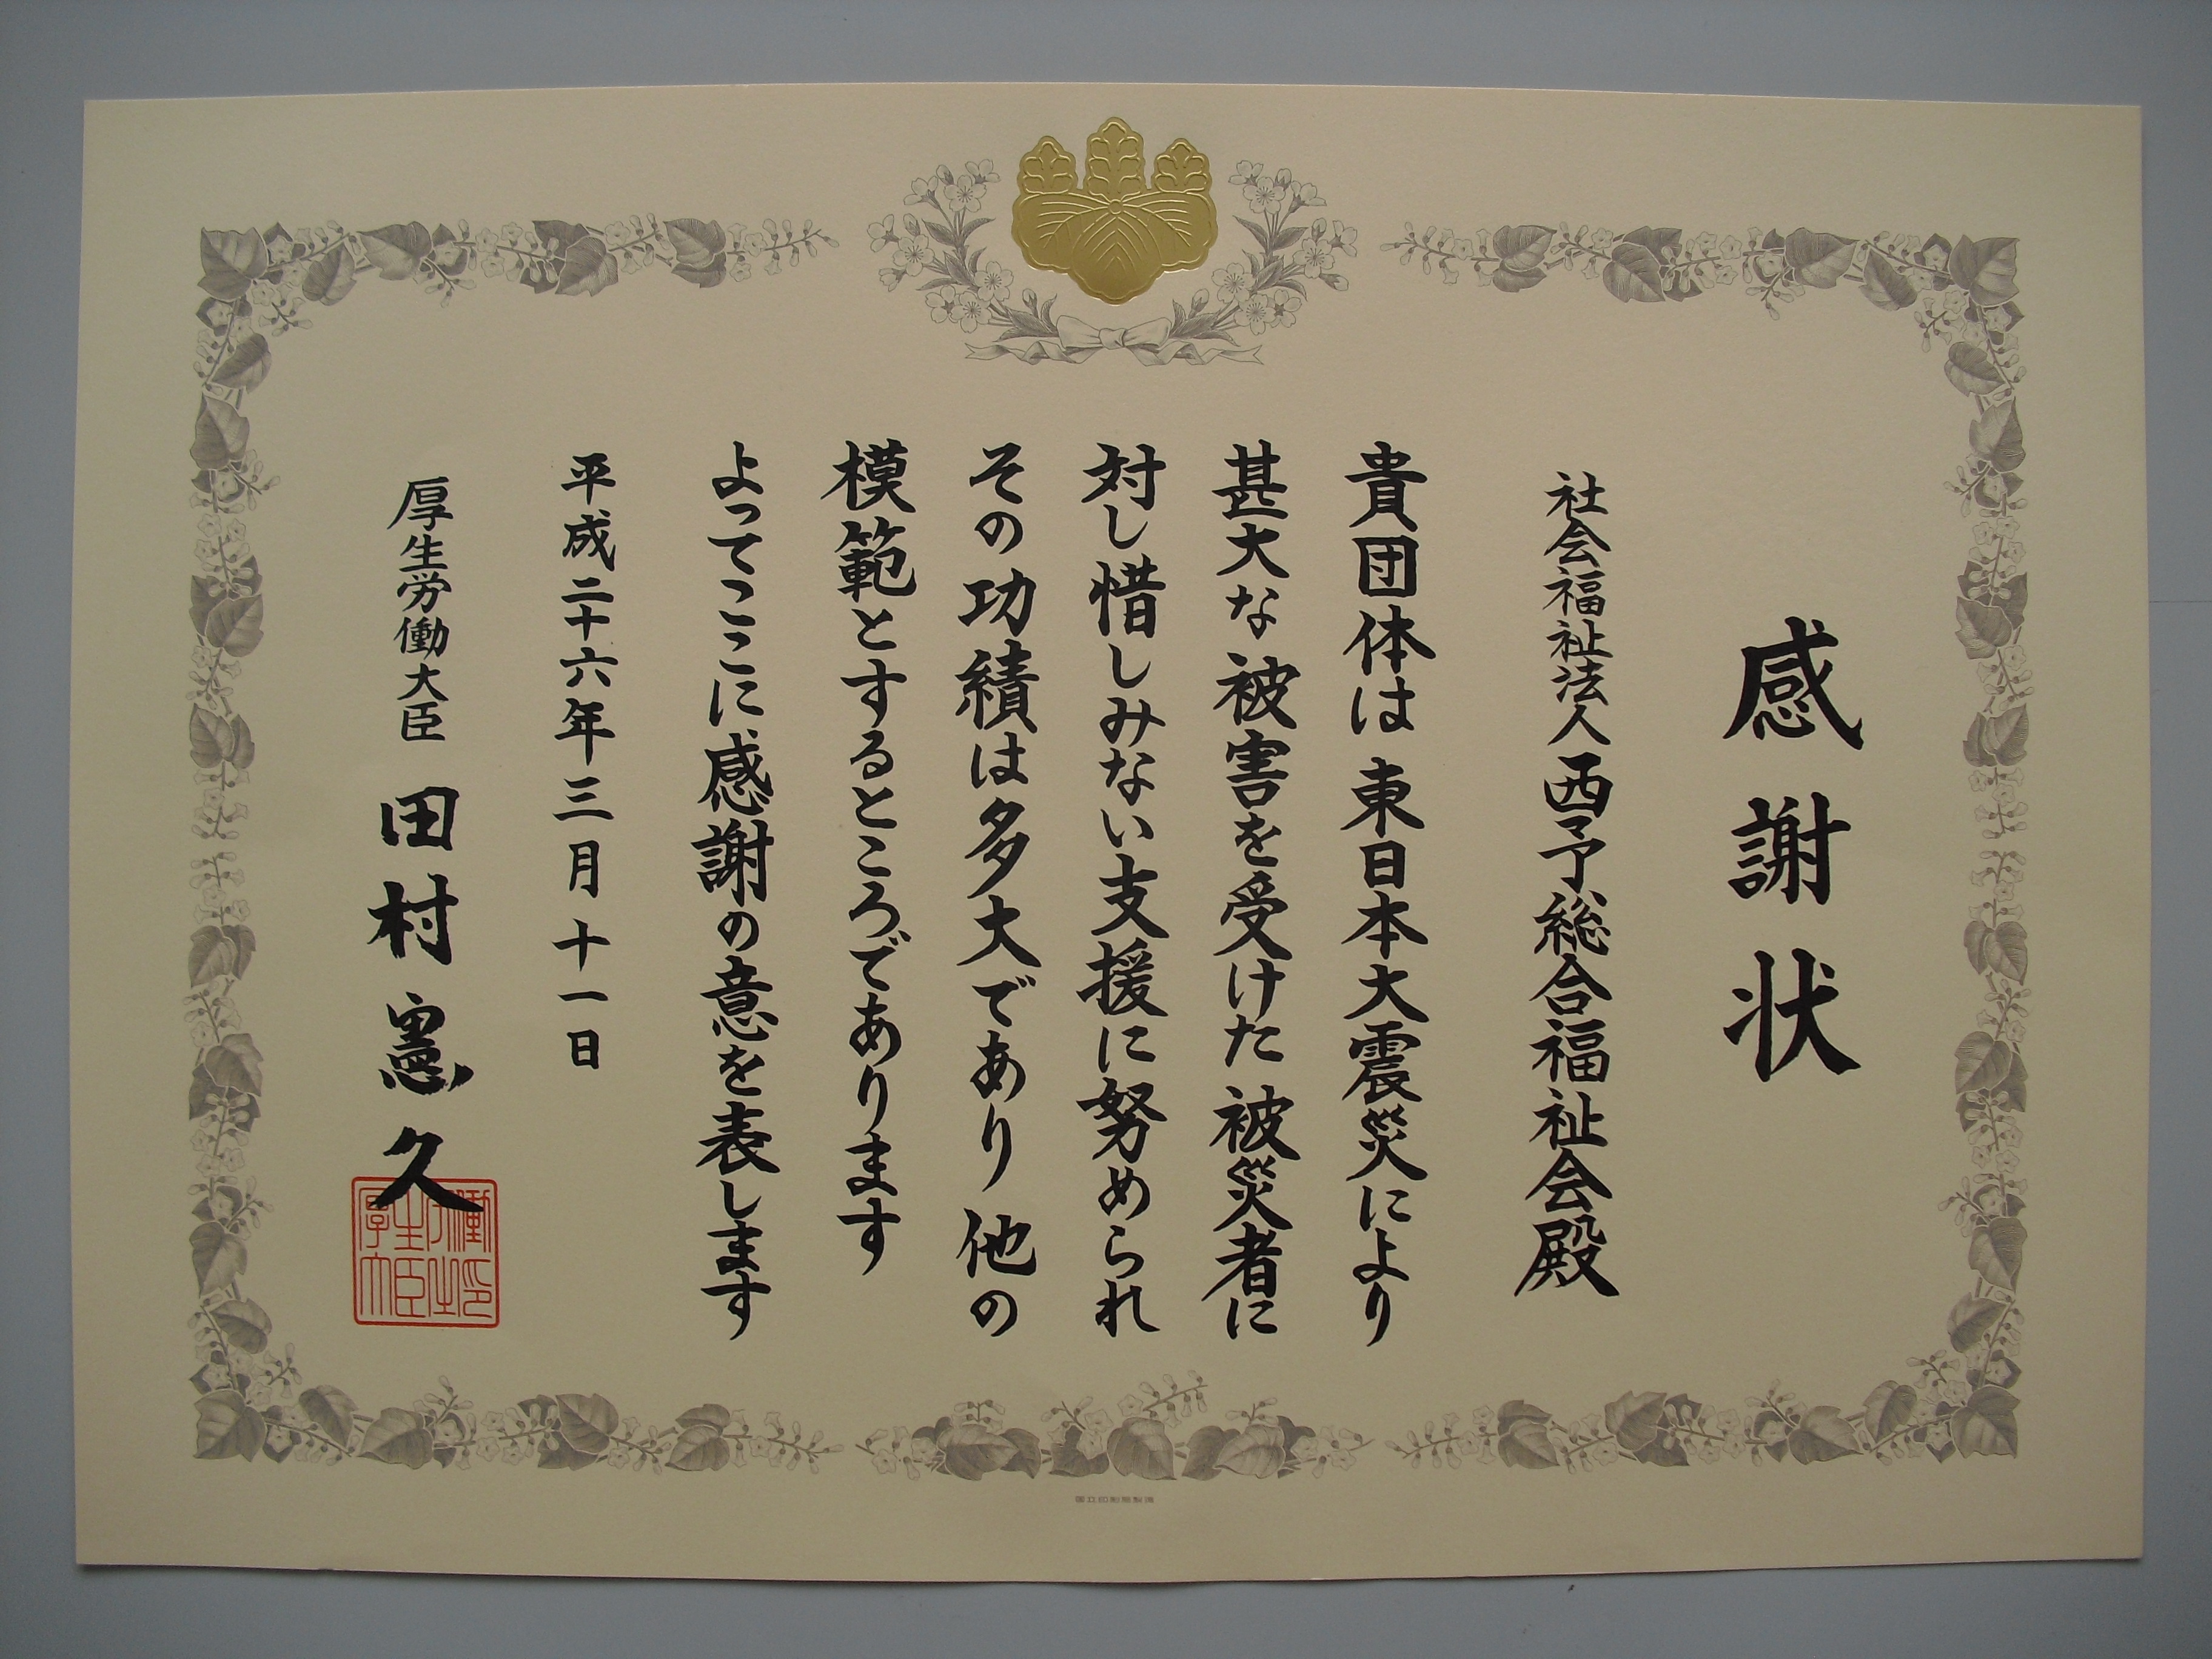 感謝状
社会福祉法人西予総合福祉会殿
貴団体は東日本大震災により
甚大な被害を受けた被災者に
対し惜しみない支援に努められ
その功績は多大であり他の
模範とするところであります
よってここに感謝の意を表します
平成二十六年三月十一日
厚生労働大臣 田村憲久
国立印刷局製造